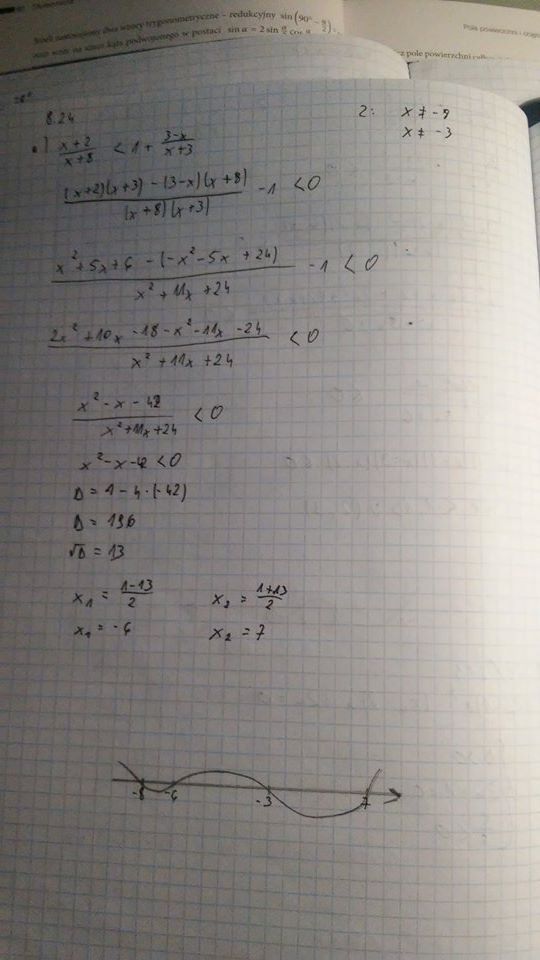 Jeżeli zastosujemy dwa wzory trygonometryczne – redukcyjny sin(90° – α/2)
oraz wzór na sinus kąta podwojonego w postaci sin α = 2 sin α/2 cos α/2
Pole powierzchni i
pole powierzchni
8.24
2: x ≠ -8
x ≠ -3
(x+2)/(x+8) < 1 + (3-x)/(x+3)
((x+2)(x+3) - (3-x)(x+8))/((x+8)(x+3)) - 1 < 0
(x²+5x+6 - (-x²-5x+24))/(x²+11x+24) - 1 < 0
(2x²+10x-18-x²-11x-24)/(x²+11x+24) < 0
(x²-x-42)/(x²+11x+24) < 0
x²-x-42 < 0
Δ = 1 - 4·(-42)
Δ = 196
√Δ = 13
x₁ = (1-13)/2 x₂ = (1+13)/2
x₁ = -6 x₂ = 7
-8 -6 -3 7